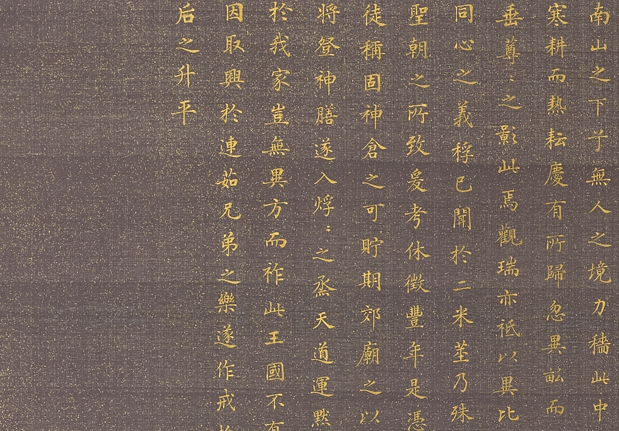 南山之下于無人之境力穡此中
寒耕而熱耘慶有所歸忽異畝而
垂蓴〻之影此焉觀瑞亦祗以異比
同心之義稃已開於二米莖乃殊
聖朝之所致爰考休徵豐年是憑
徒稱固神倉之可貯期郊廟之以
將登神膳遂入烰〻之烝天道運黙
於我家豈無異方而祚此王國不有
因取興於連茹兄弟之樂遂作戒於
后之升平